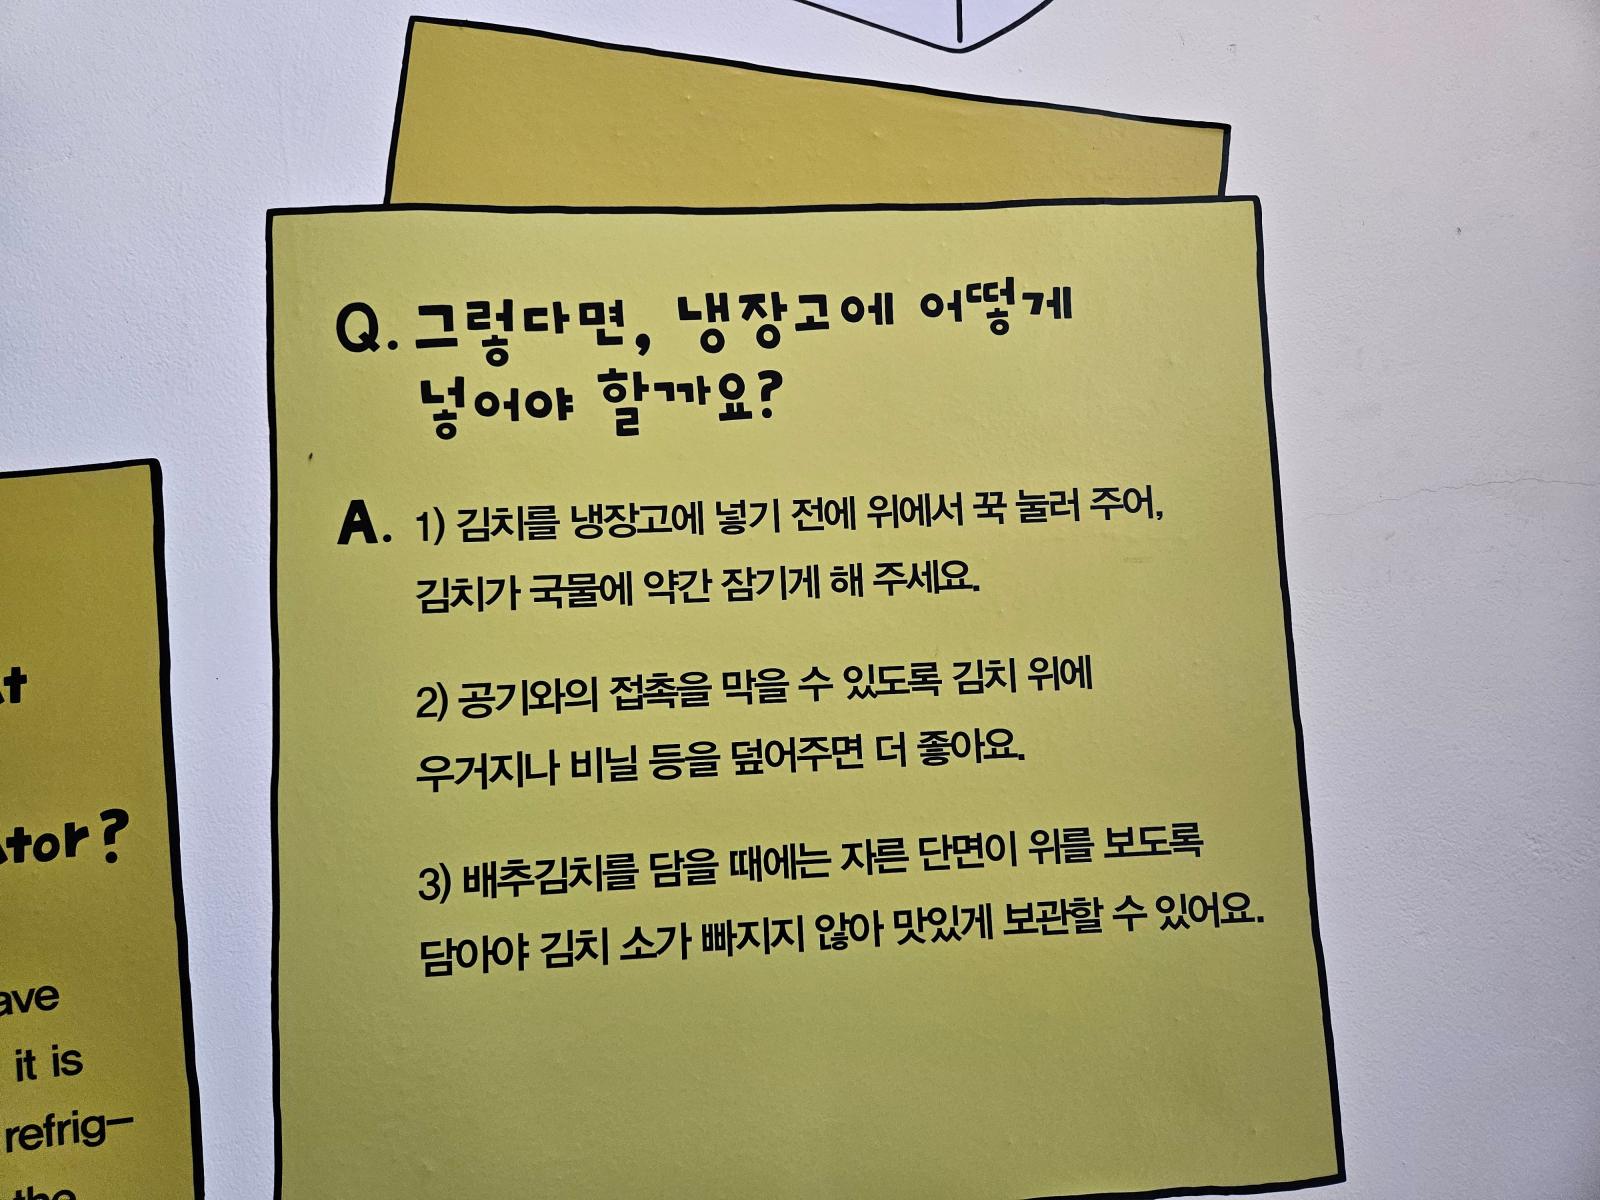 Q. 그렇다면, 냉장고에 어떻게
넣어야 할까요?
A. 1) 김치를 냉장고에 넣기 전에 위에서 꾹 눌러 주어,
김치가 국물에 약간 잠기게 해 주세요.
2) 공기와의 접촉을 막을 수 있도록 김치 위에
우거지나 비닐 등을 덮어주면 더 좋아요.
3) 배추김치를 담을 때에는 자른 단면이 위를 보도록
담아야 김치 소가 빠지지 않아 맛있게 보관할 수 있어요.
it is
refrig–
the